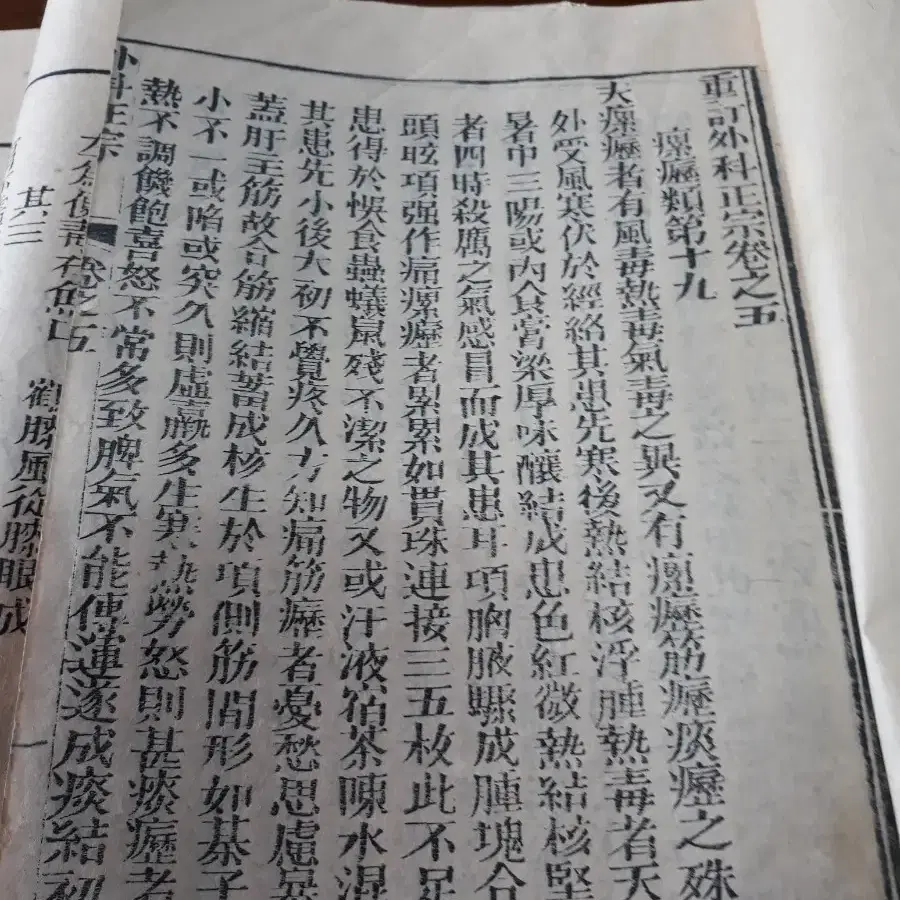 重訂外科正宗卷之五
瘰癧類第十九
夫瘰癧者有風毒熱毒氣毒之異又有瘰癧筋癧痰癧之殊
外受風寒伏於經絡其患先寒後熱結核浮腫熱毒者天
暑中三陽或內食膏梁厚味釀結成患色紅微熱結核堅
者四時殺厲之氣感冒而成其患耳項胸腋驟成腫塊令
頭眩項强作痛瘰癧者累累如貫珠連接三五枚此不足
患得於悞食蟲蟻鼠殘不潔之物又或汗液宿茶陳水混
其患先小後大初不覺疼久方知痛筋癧者憂愁思慮暴
蓋肝主筋故令筋縮結蓄成核生於項側筋間形如棊子
小不一或陷或突久則虛羸多生寒熱勞怒則甚痰癧者
熱不調饑飽喜怒不常多致脾氣不能傳運遂成痰結初
外科正宗 卷之五 一
其三 鶴膝風從膝眼成